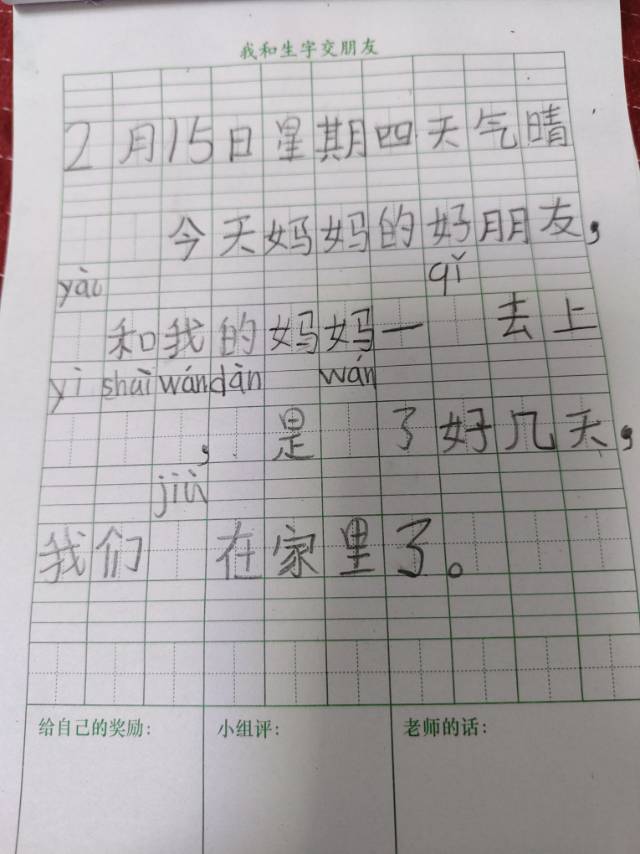 我和生字交朋友
2月15日星期四天气晴
今天妈妈的好朋友,
yào qǐ
和我的妈妈一 去上
yì shaì wán dàn wán
, 是 了好几天,
jiù
我们 在家里了。
给自己的奖励: 小组评: 老师的话: